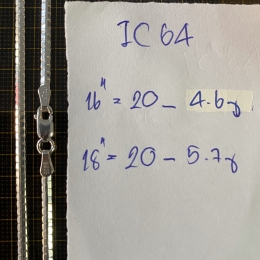 IC 64
16" = 20 - 4.6 g
18" = 20 - 5.7 g